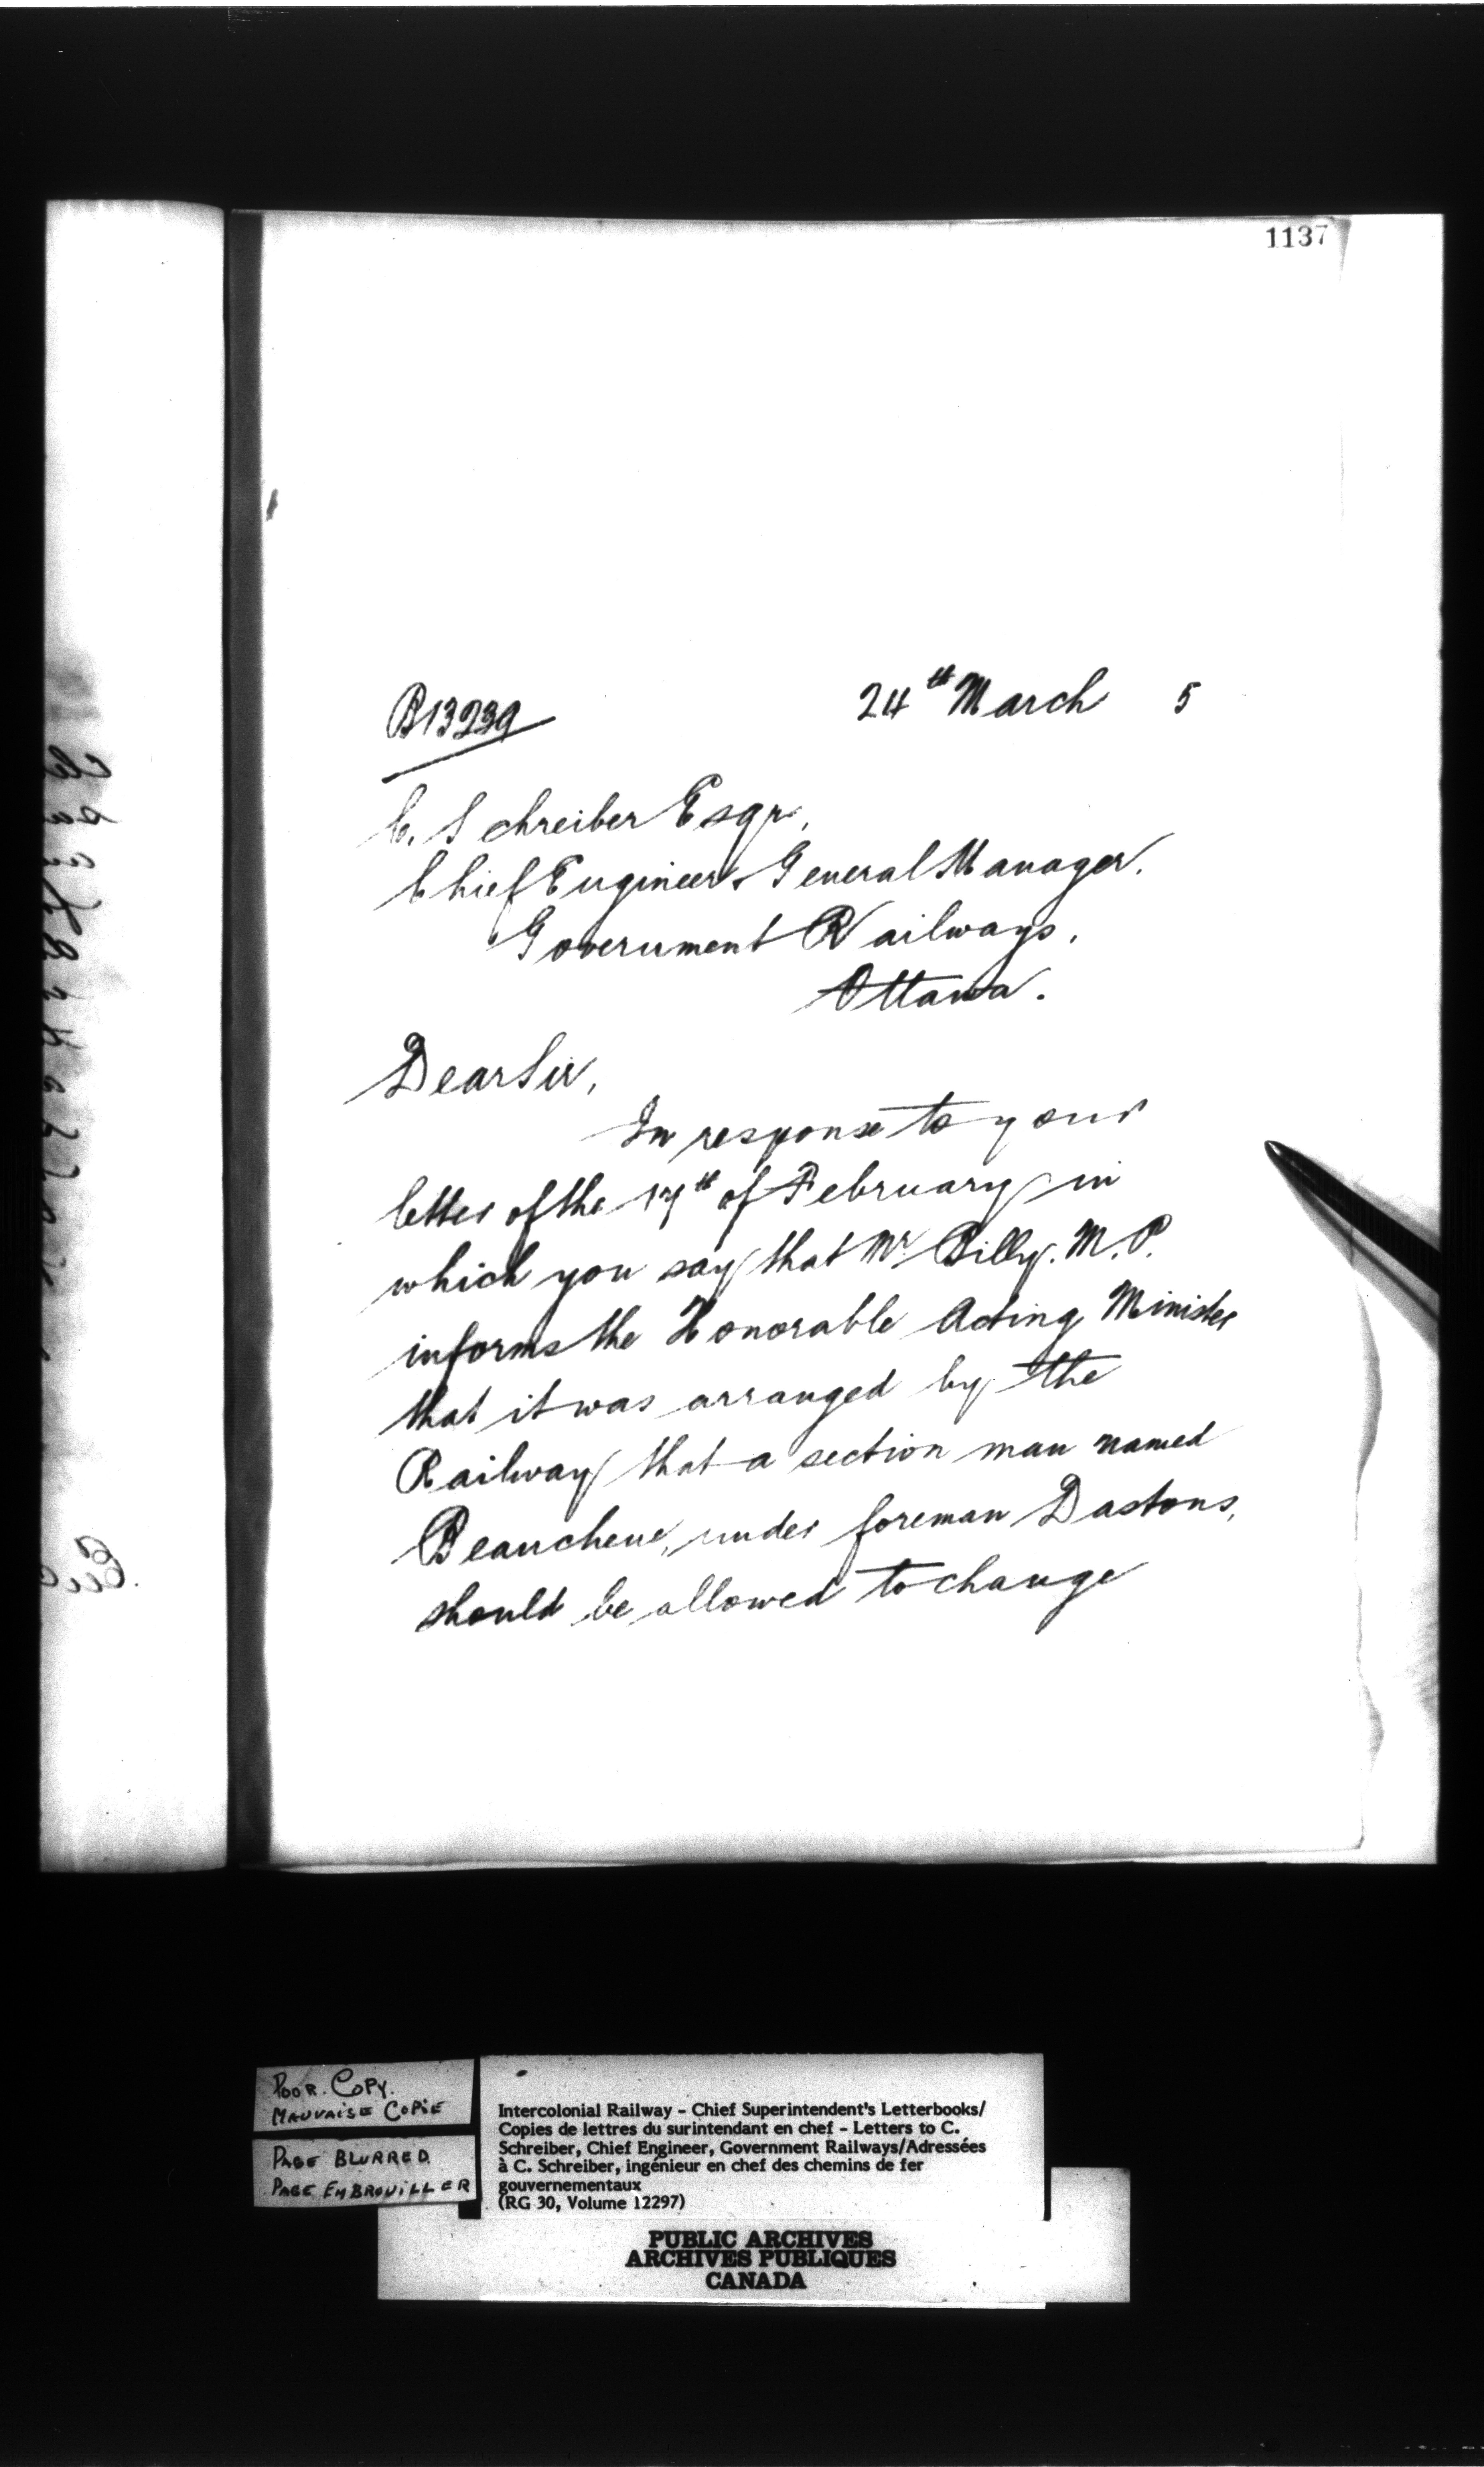 1137
B13239
24th March 5
C. Schreiber Esqr,
Chief Engineer & General Manager.
Government Railways,
Ottawa.
Dear Sir,
In response to your
letter of the 17th of February in
which you say that Mr Billy. M.P.
informs the Honorable Acting Minister
that it was arranged by the
Railway that a section man named
Beauchene, under foreman Dastous,
should be allowed to change
POOR. COPY.
MAUVAISE COPIE
PAGE BLURRED
PAGE EMBROUILLER
Intercolonial Railway - Chief Superintendent's Letterbooks/
Copies de lettres du surintendant en chef - Letters to C.
Schreiber, Chief Engineer, Government Railways/Adressées
à C. Schreiber, ingénieur en chef des chemins de fer
gouvernementaux
(RG 30, Volume 12297)
PUBLIC ARCHIVES
ARCHIVES PUBLIQUES
CANADA